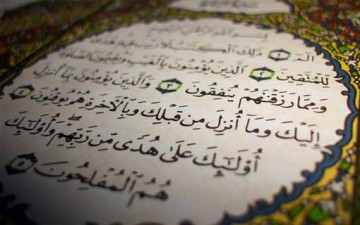 الٓمٓ ۝ ذَٰلِكَ ٱلْكِتَٰبُ لَا رَيْبَ
لِّلْمُتَّقِينَ ۝ ٱلَّذِينَ يُؤْمِنُونَ بِٱلْغَيْبِ وَيُقِيمُونَ
وَمِمَّا رَزَقْنَٰهُمْ يُنفِقُونَ ۝ وَٱلَّذِينَ يُؤْمِنُونَ بِمَآ أُنزِلَ
إِلَيْكَ وَمَآ أُنزِلَ مِن قَبْلِكَ وَبِٱلْءَاخِرَةِ هُمْ يُوقِنُونَ ۝
أُو۟لَٰٓئِكَ عَلَىٰ هُدًى مِّن رَّبِّهِمْ وَأُو۟لَٰٓئِكَ
هُمُ ٱلْمُفْلِحُونَ ۝